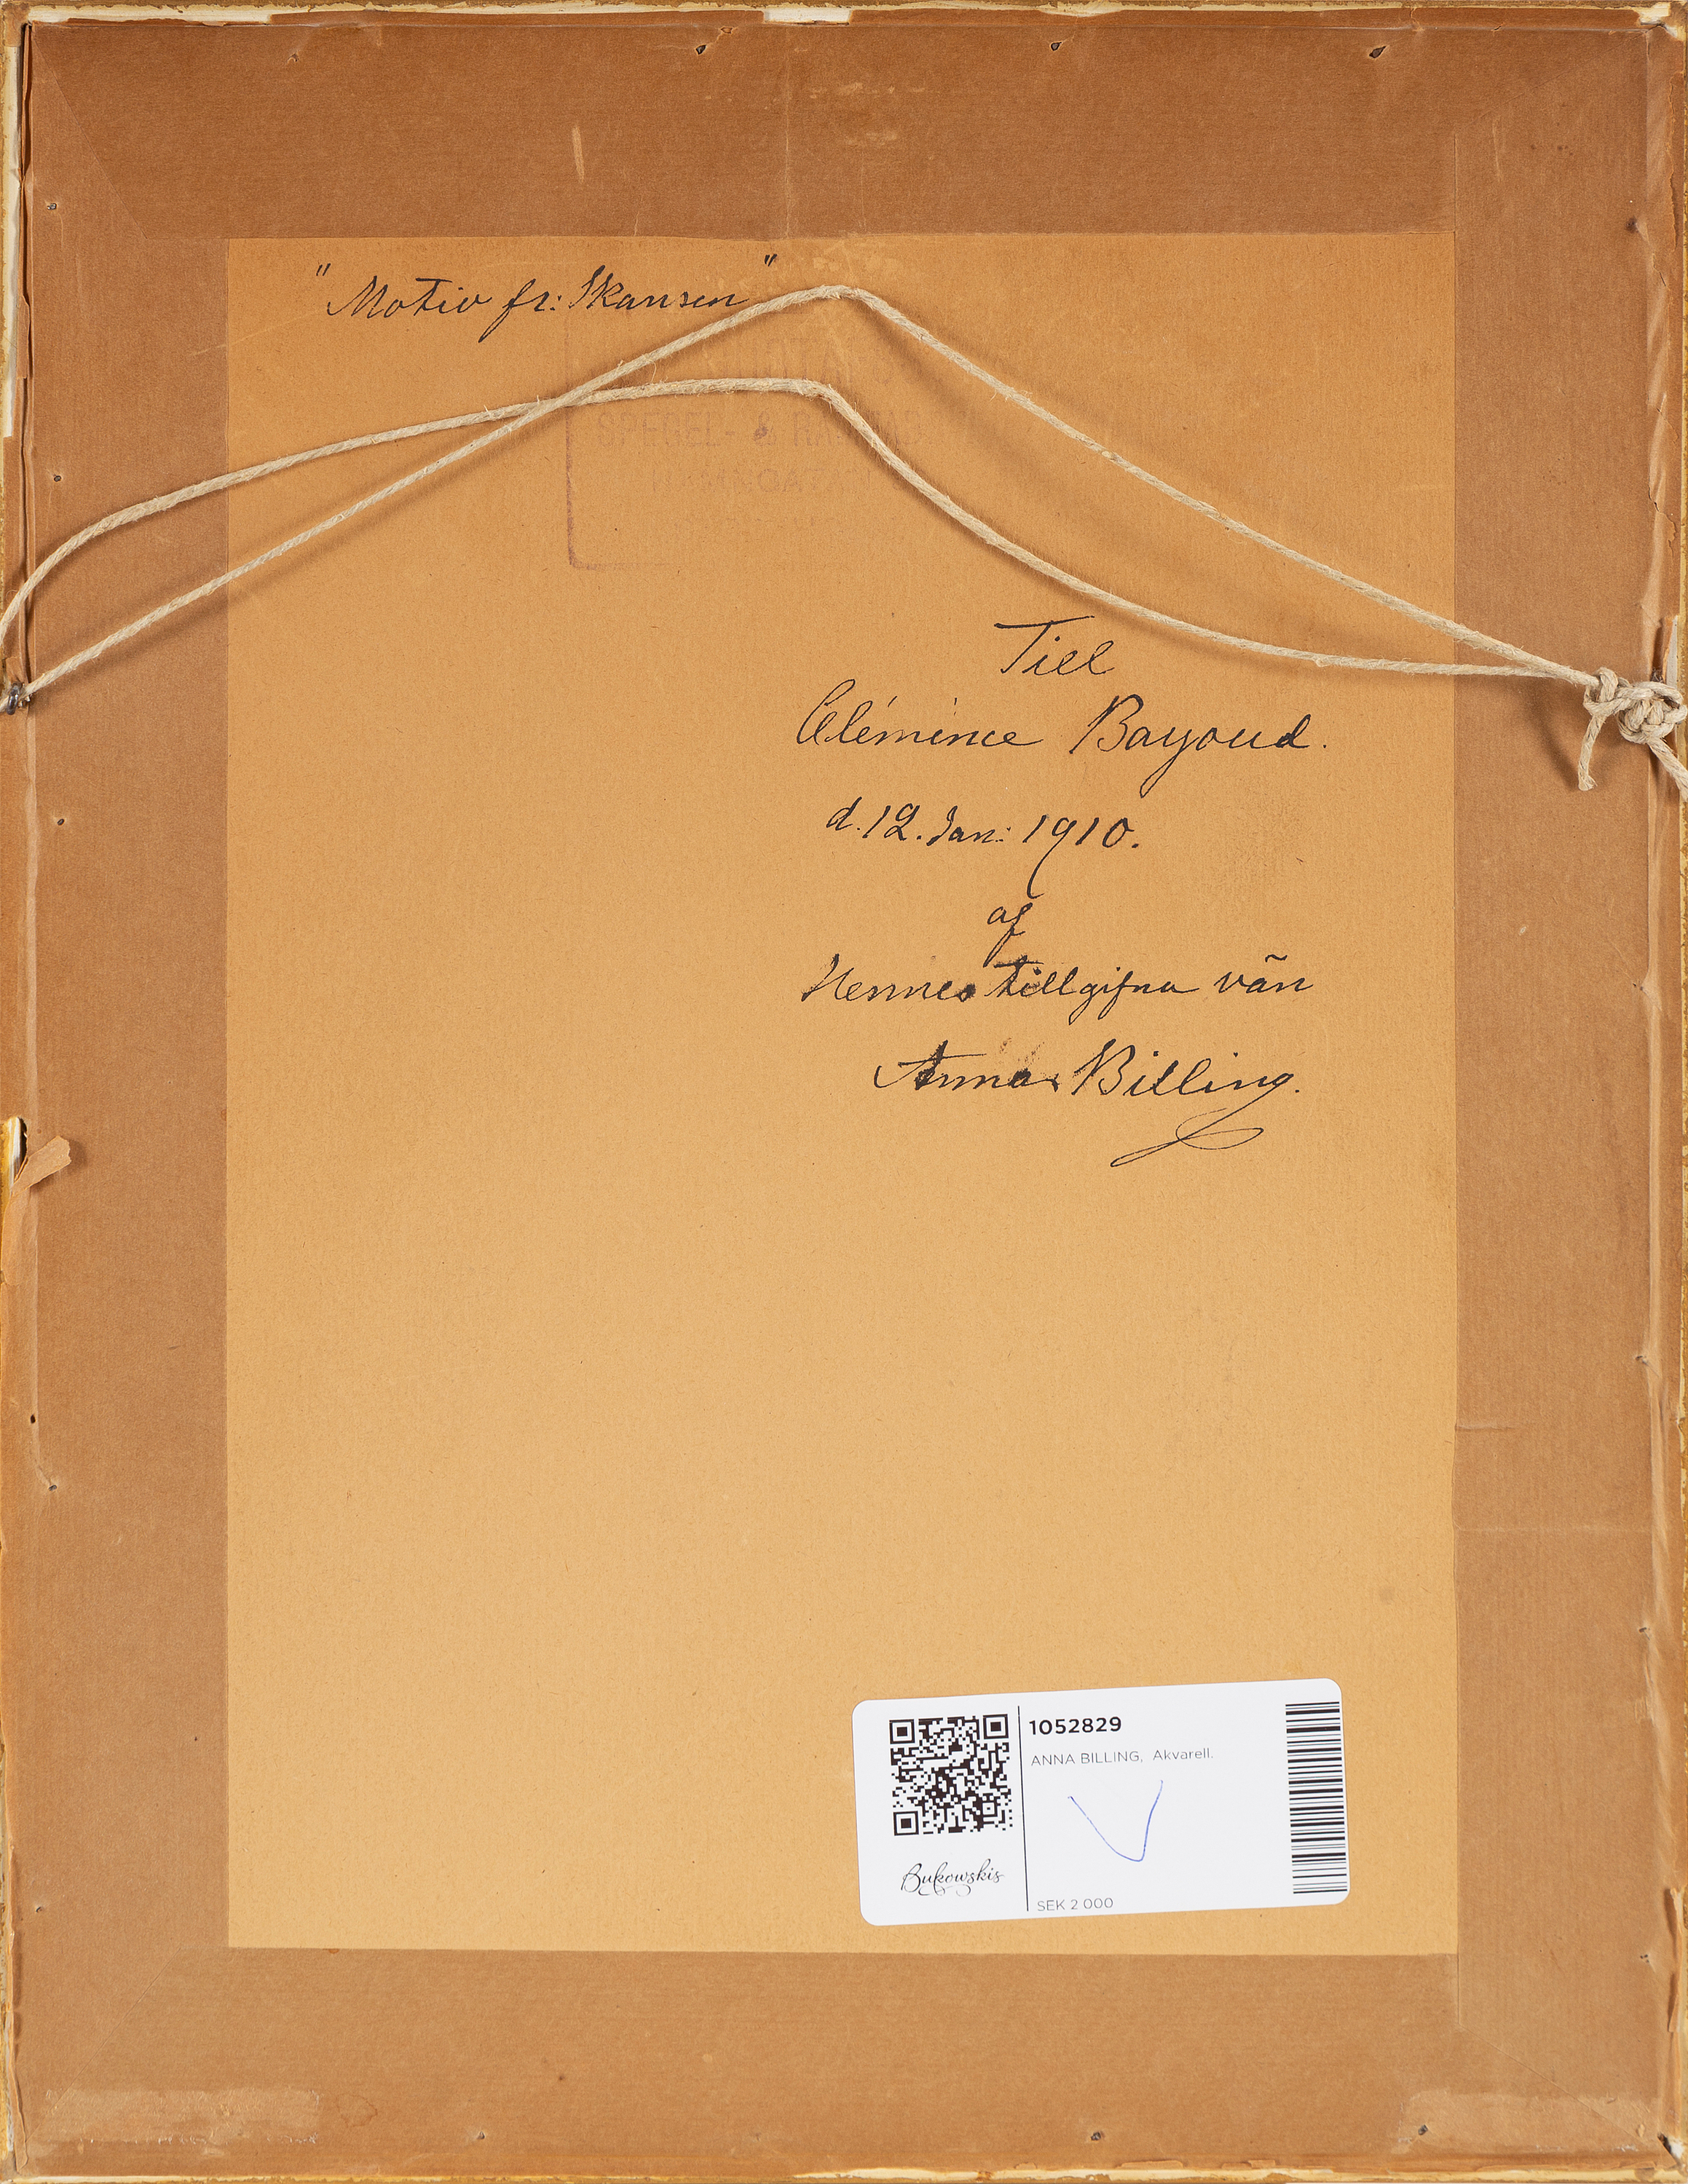 "Motiv fr: Skansen"
SPEGEL- &
Till
Clémence Bayoud.
d. 12. Jan: 1910.
af
Hennes tillgifna vän
Anna Billing.
1052829
ANNA BILLING, Akvarell.
Bukowskis
SEK 2 000